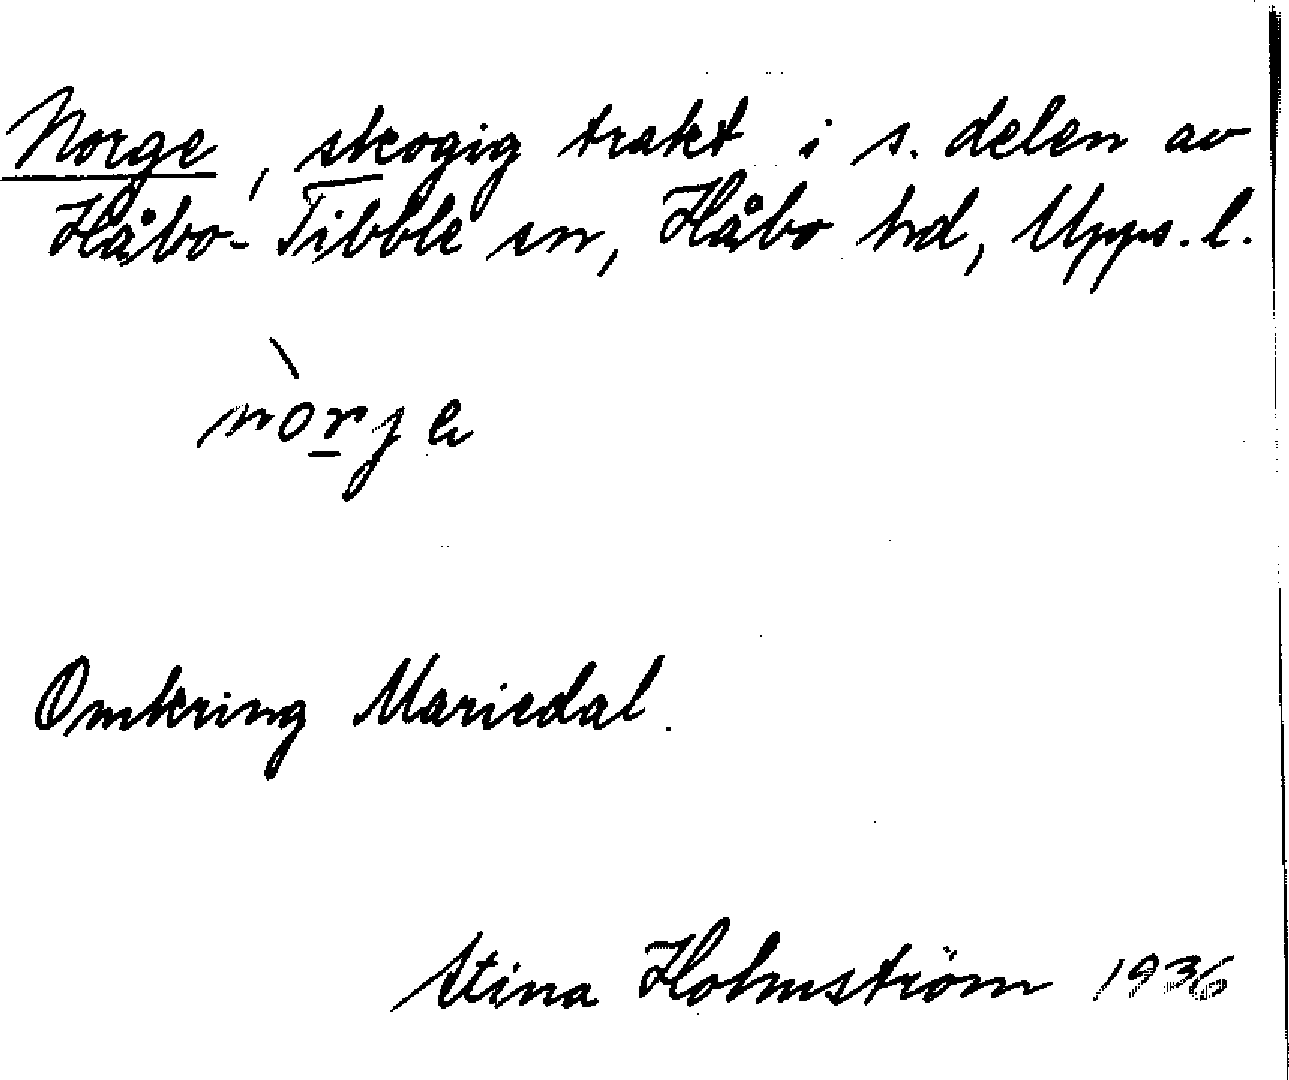 Norge, skogig trakt i s. delen av
Håbo-Tibble sn, Håbo hd, Upps. l.
nòrje
Omkring Mariedal.
Stina Holmström 1936